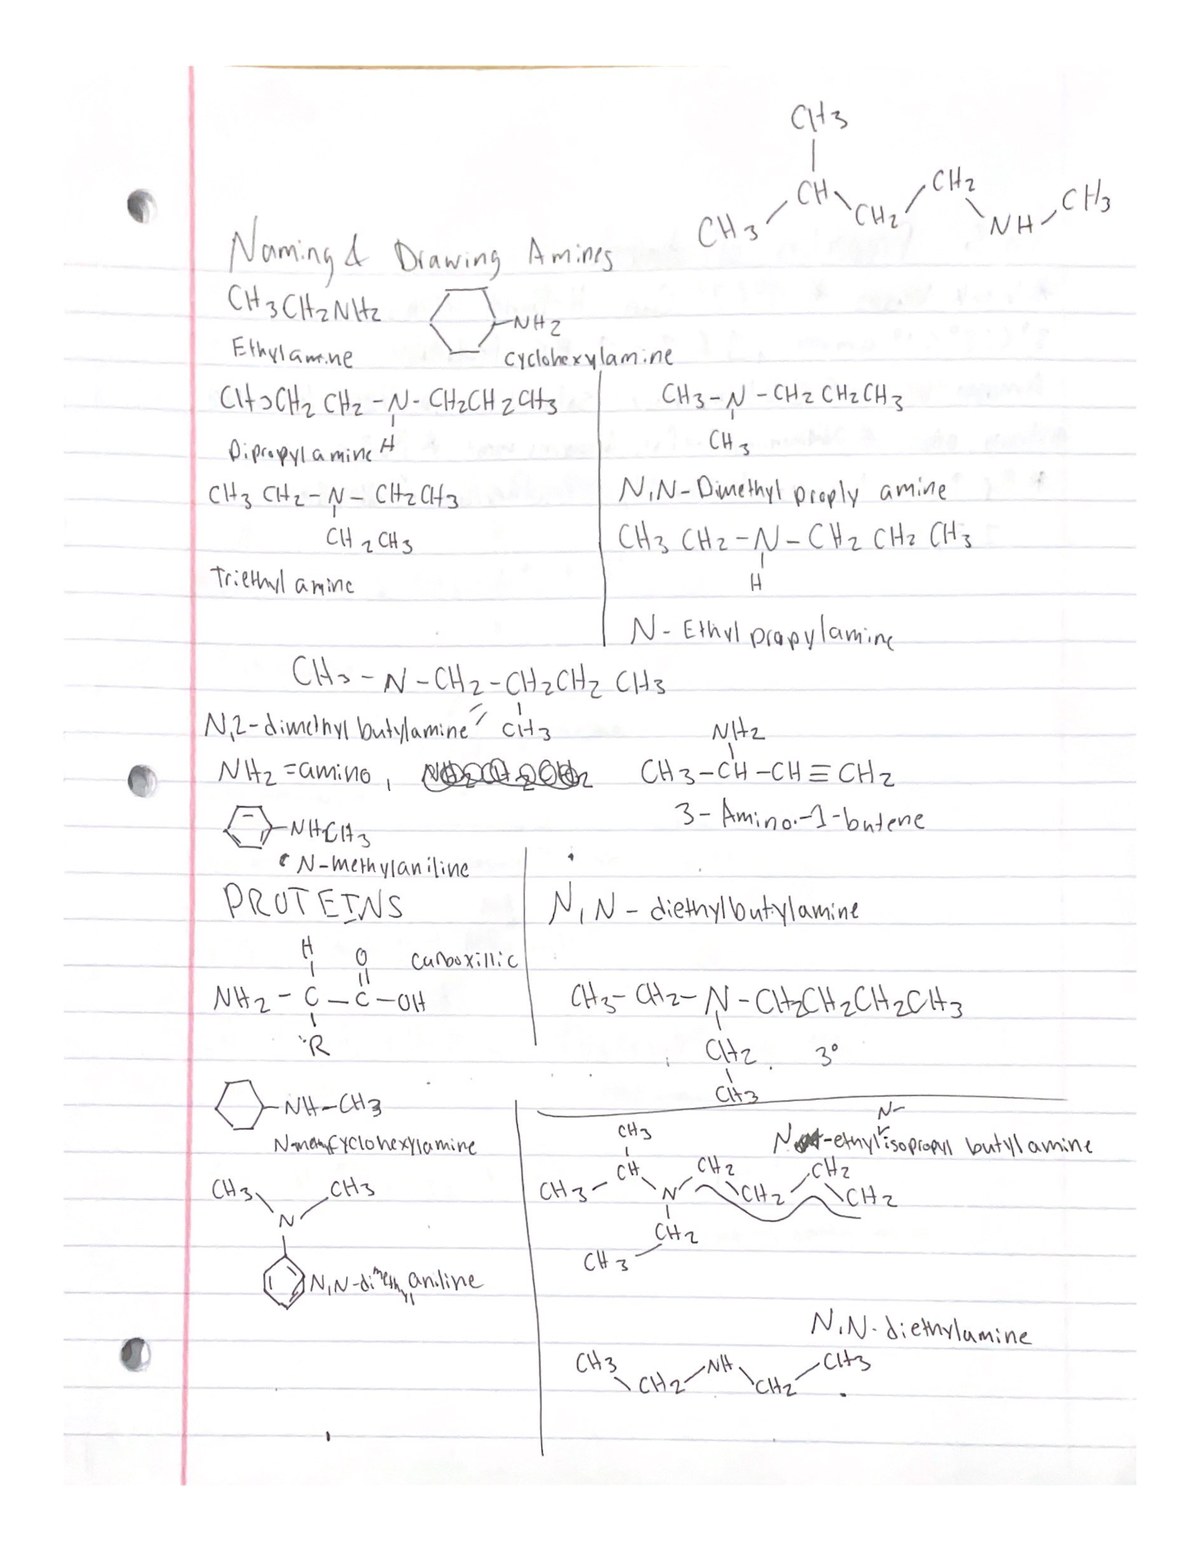 CH3
CH3 CH CH2 CH2 NH CH3
Naming & Drawing Amines
CH3CH2NH2
NH2
Ethylamine
cyclohexylamine
CH3CH2 CH2 - N - CH2CH2CH3
H
Dipropylamine
CH3 - N - CH2 CH2CH3
CH3
N,N-Dimethyl proply amine
CH3 CH2 - N - CH2CH3
CH2CH3
Triethyl amine
CH3 CH2 - N - CH2 CH2 CH3
H
N- Ethyl propylamine
CH3 - N - CH2 - CH2CH2 CH3
CH3
N,2-dimethyl butylamine
NH2 = amino,
NH2
CH3-CH-CH≡CH2
3-Amino-1-butene
NHCH3
N-methylaniline
PROTEINS
H O Carboxillic
NH2 - C - C - OH
R
N,N - diethylbutylamine
CH3- CH2- N - CH2CH2CH2CH3
CH2 3°
CH3
NH-CH3
N-methcyclohexylamine
CH3 CH3
N
N,N-dimethyl aniline
N-
N-ethyl isopropyl butylamine
CH3
CH3 CH N CH2 CH2 CH2 CH2
CH2
CH3
N,N-diethylamine
CH3 CH2 NH CH2 CH3